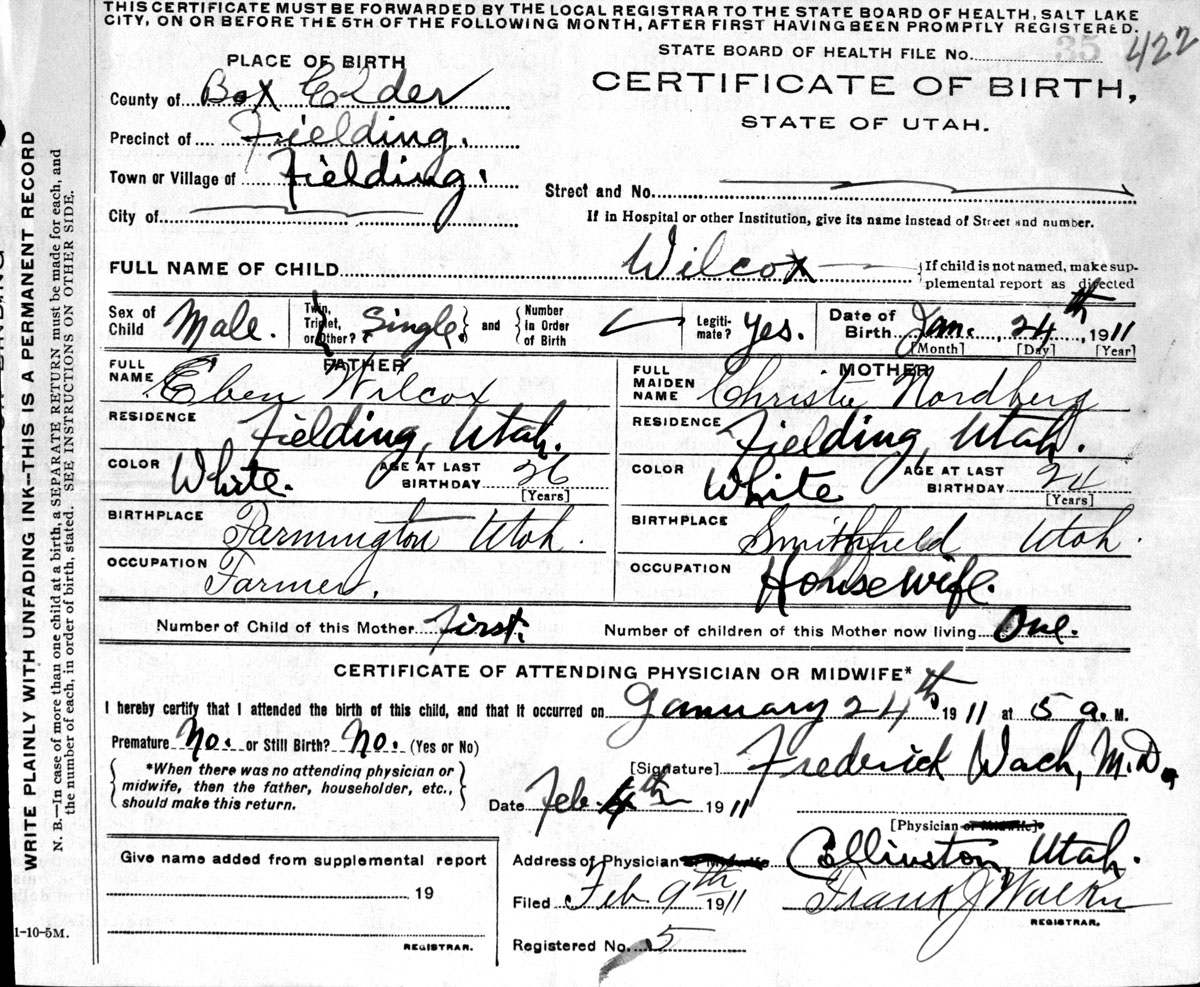 THIS CERTIFICATE MUST BE FORWARDED BY THE LOCAL REGISTRAR TO THE STATE BOARD OF HEALTH, SALT LAKE
CITY, ON OR BEFORE THE 5TH OF THE FOLLOWING MONTH, AFTER FIRST HAVING BEEN PROMPTLY REGISTERED.
STATE BOARD OF HEALTH FILE No. 35 422
PLACE OF BIRTH
CERTIFICATE OF BIRTH,
STATE OF UTAH.
County of Box Elder
Precinct of Fielding.
Town or Village of Fielding.
Street and No.
City of
If in Hospital or other Institution, give its name instead of Street and number.
FULL NAME OF CHILD Wilcox
If child is not named, make sup-
plemental report as directed
Sex of Child Male.
Twin, Triplet, or Other? Single and Number in Order of Birth
Legiti-mate? Yes.
Date of Birth Jan. 24th, 1911
[Month] [Day] [Year]
FATHER
MOTHER
FULL NAME Eben Wilcox
FULL MAIDEN NAME Christie Nordberg
RESIDENCE Fielding, Utah.
RESIDENCE Fielding, Utah.
COLOR White. AGE AT LAST BIRTHDAY 26 [Years]
COLOR White AGE AT LAST BIRTHDAY 24 [Years]
BIRTHPLACE Farmington Utah.
BIRTHPLACE Smithfield Utah.
OCCUPATION Farmer.
OCCUPATION Housewife.
Number of Child of this Mother First.
Number of children of this Mother now living One.
CERTIFICATE OF ATTENDING PHYSICIAN OR MIDWIFE*
I hereby certify that I attended the birth of this child, and that it occurred on January 24th 1911 at 5 a. M.
Premature No. or Still Birth? No. (Yes or No)
*When there was no attending physician or
midwife, then the father, householder, etc.,
should make this return.
[Signature] Frederick Wach, M.D.
Date Feb. 4th 1911
[Physician or Midwife]
Give name added from supplemental report
19
REGISTRAR.
Address of Physician or Midwife Collinston, Utah.
Filed Feb 9th 1911
Frank J
REGISTRAR.
Registered No. 5
1-10-5M.
WRITE PLAINLY WITH UNFADING INK—THIS IS A PERMANENT RECORD
N. B.—In case of more than one child at a birth, a SEPARATE RETURN must be made for each, and
the number of each, in order of birth, stated. SEE INSTRUCTIONS ON OTHER SIDE.